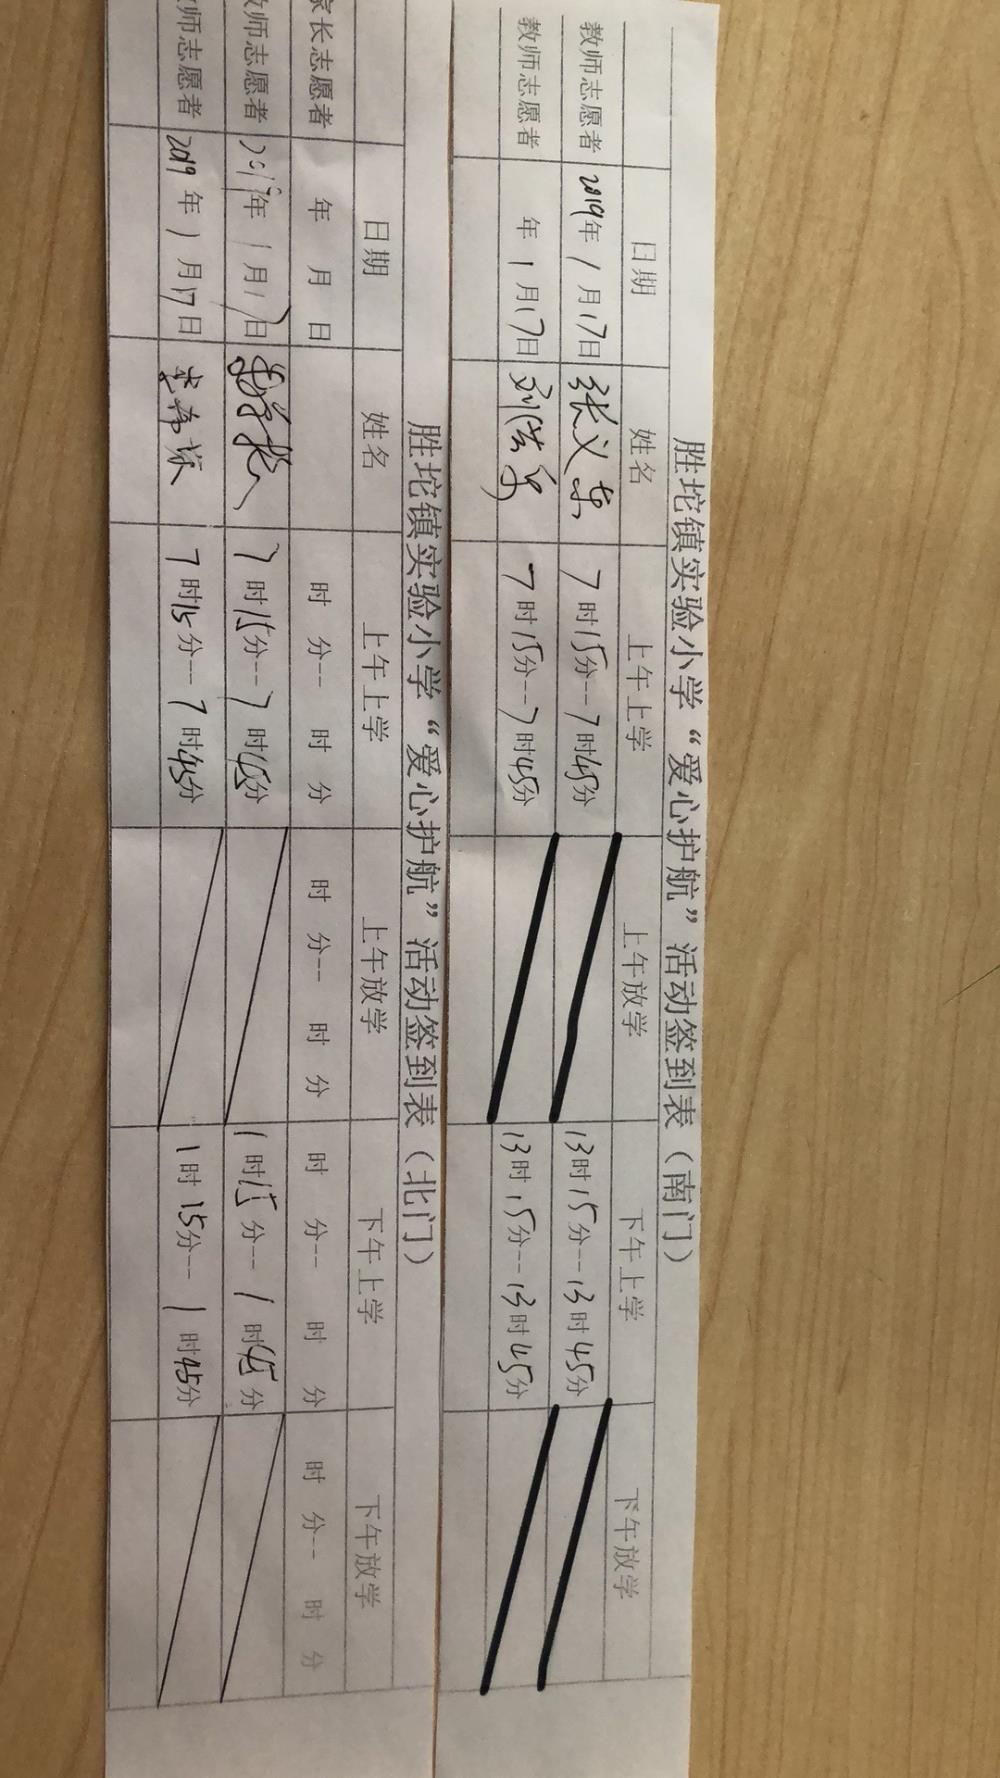 胜坨镇实验小学“爱心护航”活动签到表（南门）
日期 姓名 上午上学 上午放学 下午上学 下午放学
教师志愿者 2019年1月17日 张义东 7时15分--7时45分 13时15分--13时45分
教师志愿者 年1月17日 7时15分--7时45分 13时15分--13时45分
胜坨镇实验小学“爱心护航”活动签到表（北门）
日期 姓名 上午上学 上午放学 下午上学 下午放学
家长志愿者 年 月 日 时 分-- 时 分 时 分-- 时 分 时 分-- 时 分 时 分-- 时 分
教师志愿者 2019年1月17日 7时15分--7时45分 1时15分--1时45分
师志愿者 2019年1月17日 7时15分--7时45分 1时15分--1时45分